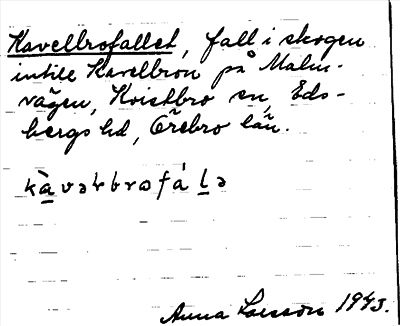 Kavelbrofallet, fall i skogen
intill Kavelbron på Malm-
vägen, Kvistbro sn, Eds-
bergs hd, Örebro län.
Anna Larsson 1943.